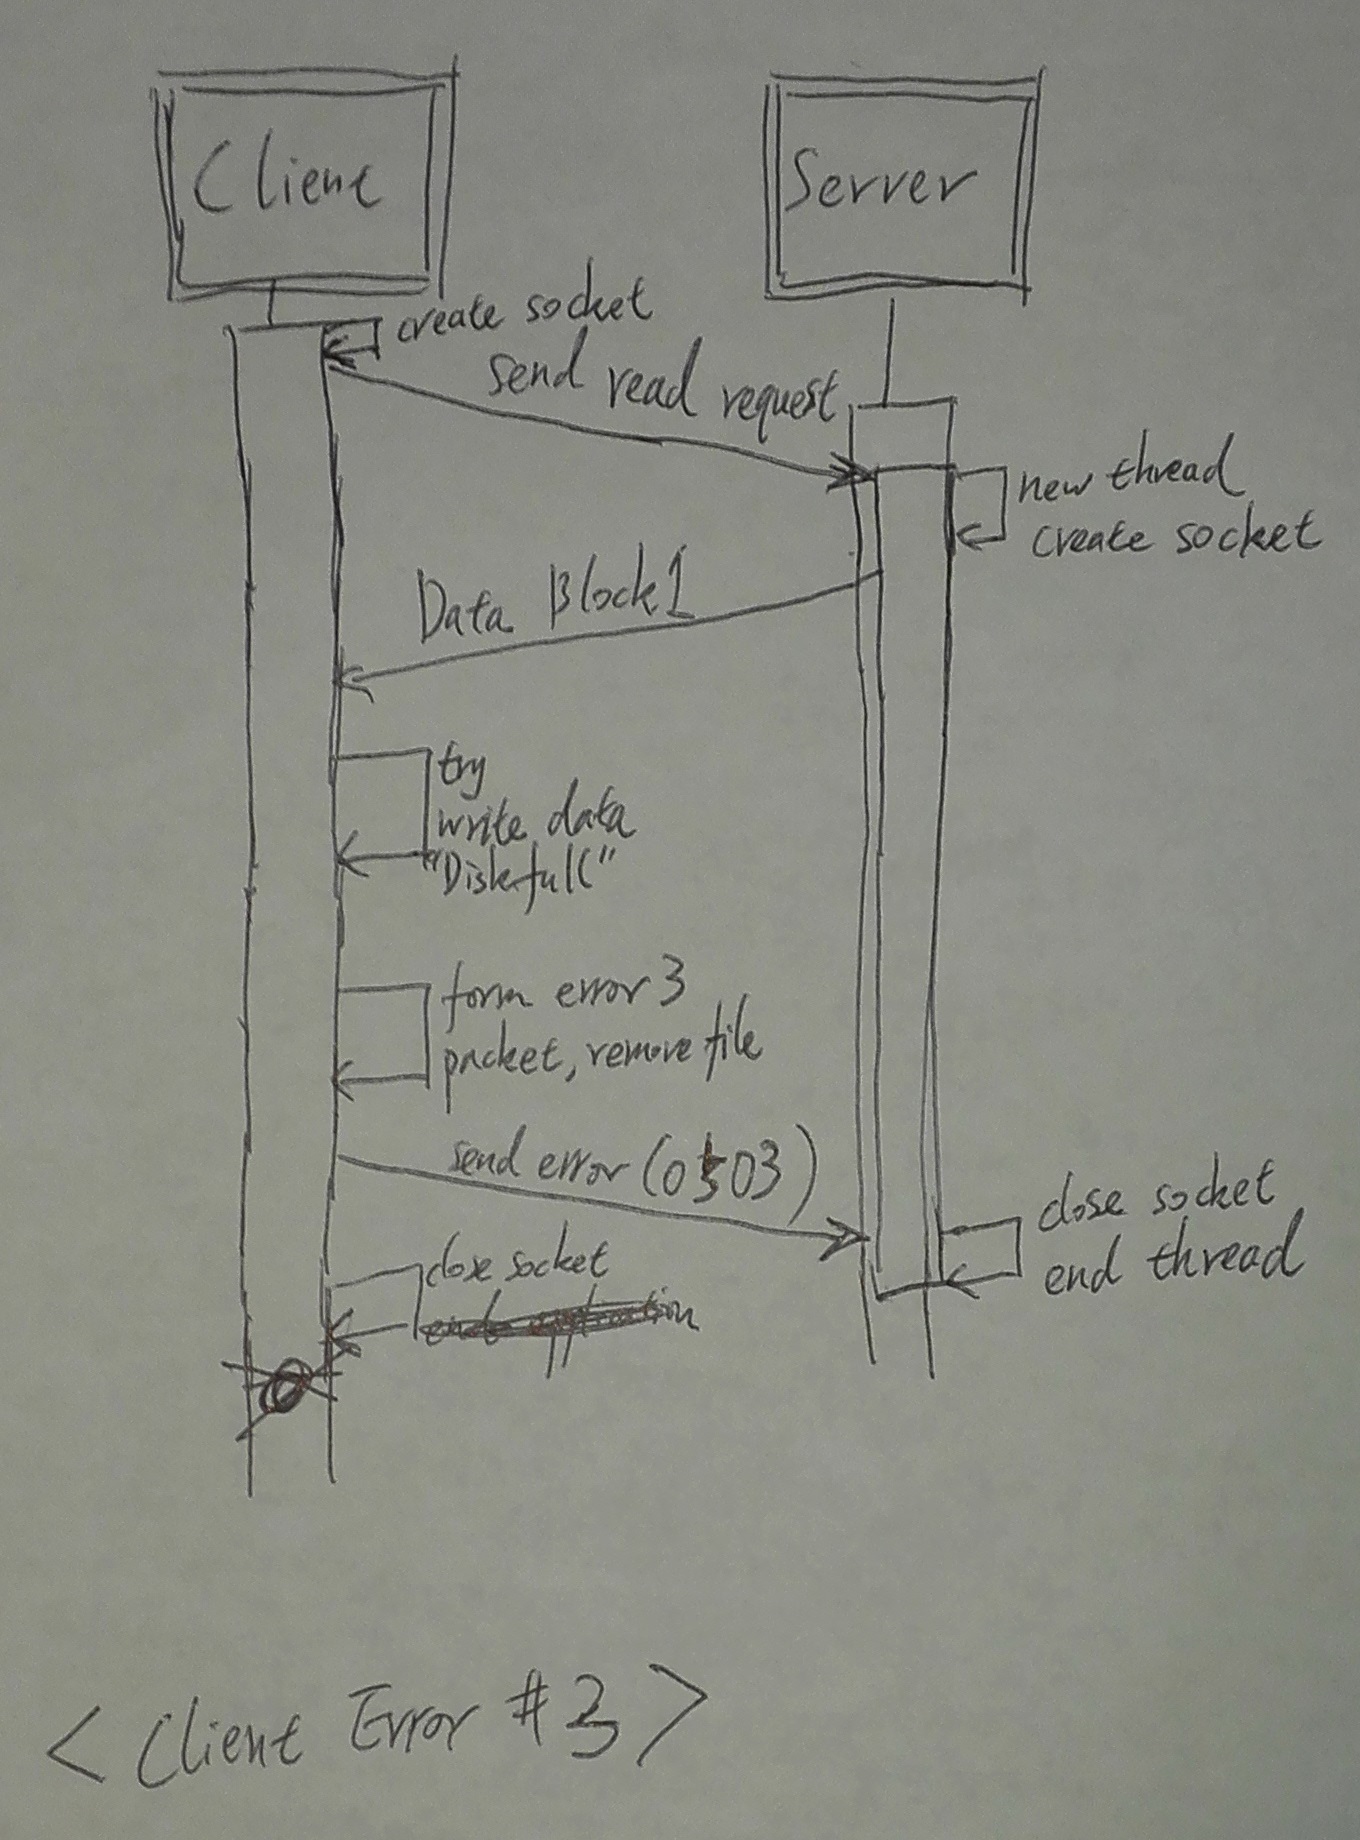 Client
Server
create socket
send read request
new thread
create socket
Data Block1
try
write data
"Disk full"
form error 3
packet, remove file
send error (0503)
close socket
end thread
close socket
< Client Error #3 >